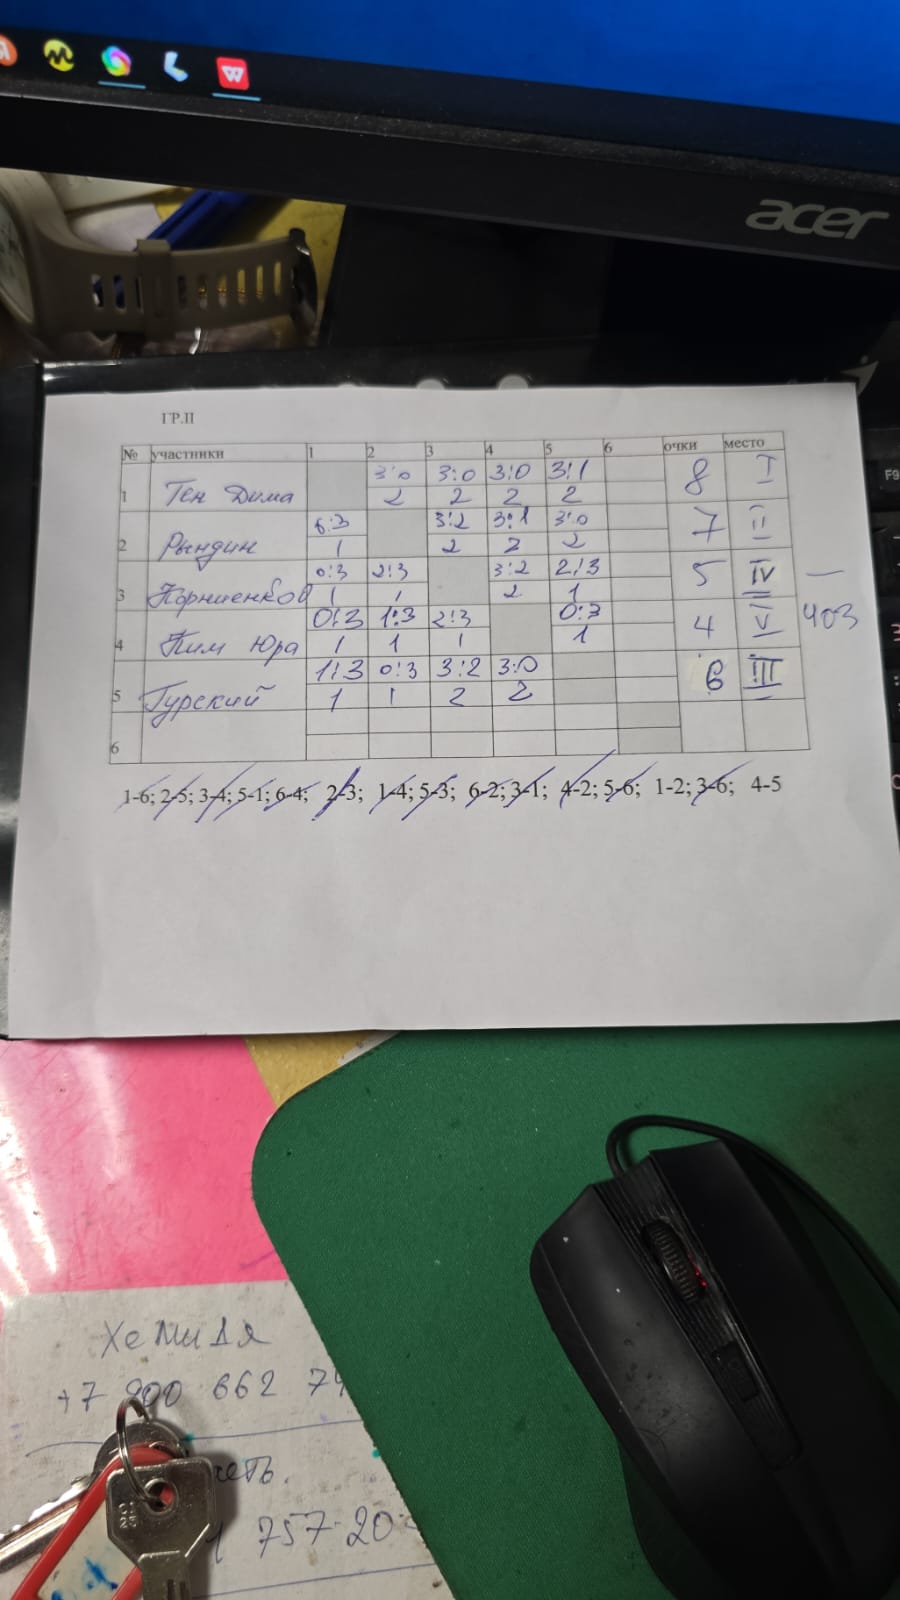 acer
F9
ГР.II
№ участники 1 2 3 4 5 6 очки место
1 Тен Дима 3:0 3:0 3:0 3:1 8 I
2 2 2 2
2 Рындин 3:2 3:1 3:0 7 II
1 2 2 2
3 Корниенков 0:3 2:3 3:2 2:3 5 IV
1 1 2 1
4 Ким Юра 0:3 1:3 2:3 0:3 4 V
1 1 1 1
5 Гурский 1:3 0:3 3:2 3:0 6 III
1 1 2 2
6
1-6; 2-5; 3-4; 5-1; 6-4; 2-3; 1-4; 5-3; 6-2; 3-1; 4-2; 5-6; 1-2; 3-6; 4-5
+7 900 662
757-20